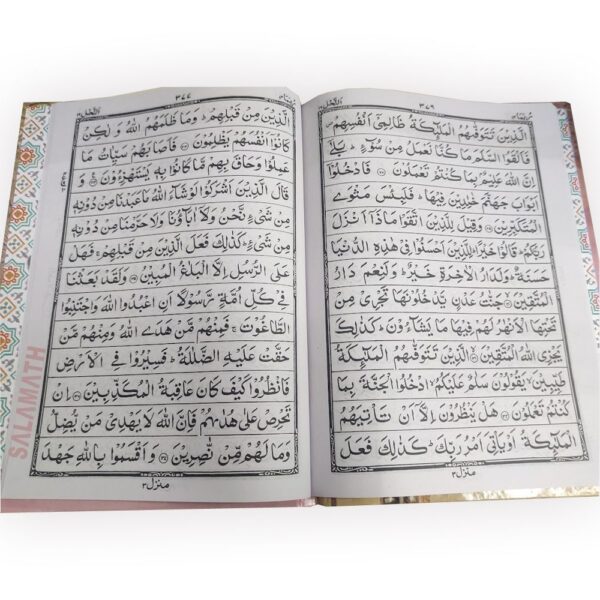 ٣٧٦
الَّذِيْنَ تَتَوَفّٰىهُمُ الْمَلٰٓئِكَةُ ظَالِمِيْٓ اَنْفُسِهِمْ
فَاَلْقَوُا السَّلَمَ مَا كُنَّا نَعْمَلُ مِنْ سُوْٓءٍ ؕ بَلٰٓى
اِنَّ اللّٰهَ عَلِيْمٌۢ بِمَا كُنْتُمْ تَعْمَلُوْنَ ﴿۲۸﴾ فَادْخُلُوْٓا
اَبْوَابَ جَهَنَّمَ خٰلِدِيْنَ فِيْهَا ؕ فَلَبِئْسَ مَثْوَى
الْمُتَكَبِّرِيْنَ ﴿۲۹﴾ وَقِيْلَ لِلَّذِيْنَ اتَّقَوْا مَاذَاۤ اَنْزَلَ
رَبُّكُمْ ؕ قَالُوْا خَيْرًا ؕ لِلَّذِيْنَ اَحْسَنُوْا فِيْ هٰذِهِ الدُّنْيَا
حَسَنَةٌ ؕ وَلَدَارُ الْاٰخِرَةِ خَيْرٌ ؕ وَلَنِعْمَ دَارُ
الْمُتَّقِيْنَ ﴿۳۰﴾ جَنّٰتُ عَدْنٍ يَّدْخُلُوْنَهَا تَجْرِيْ مِنْ
تَحْتِهَا الْاَنْهٰرُ لَهُمْ فِيْهَا مَا يَشَآءُوْنَ ؕ كَذٰلِكَ
يَجْزِي اللّٰهُ الْمُتَّقِيْنَ ﴿۳۱﴾ الَّذِيْنَ تَتَوَفّٰىهُمُ الْمَلٰٓئِكَةُ
طَيِّبِيْنَ ۙ يَقُوْلُوْنَ سَلٰمٌ عَلَيْكُمُ ۙ ادْخُلُوا الْجَنَّةَ بِمَا
كُنْتُمْ تَعْمَلُوْنَ ﴿۳۲﴾ هَلْ يَنْظُرُوْنَ اِلَّاۤ اَنْ تَاْتِيَهُمُ
الْمَلٰٓئِكَةُ اَوْ يَاْتِيَ اَمْرُ رَبِّكَ ؕ كَذٰلِكَ فَعَلَ
منزل ٣
٣٧٧
الَّذِيْنَ مِنْ قَبْلِهِمْ ؕ وَمَا ظَلَمَهُمُ اللّٰهُ وَلٰكِنْ
كَانُوْٓا اَنْفُسَهُمْ يَظْلِمُوْنَ ﴿۳۳﴾ فَاَصَابَهُمْ سَيِّاٰتُ مَا
عَمِلُوْا وَحَاقَ بِهِمْ مَّا كَانُوْا بِهٖ يَسْتَهْزِءُوْنَ ﴿۳۴﴾
قَالَ الَّذِيْنَ اَشْرَكُوْا لَوْ شَآءَ اللّٰهُ مَا عَبَدْنَا مِنْ دُوْنِهٖ
مِنْ شَيْءٍ نَّحْنُ وَلَاۤ اٰبَآؤُنَا وَلَا حَرَّمْنَا مِنْ دُوْنِهٖ
مِنْ شَيْءٍ ؕ كَذٰلِكَ فَعَلَ الَّذِيْنَ مِنْ قَبْلِهِمْ ۚ فَهَلْ
عَلَى الرُّسُلِ اِلَّا الْبَلٰغُ الْمُبِيْنُ ﴿۳۵﴾ وَلَقَدْ بَعَثْنَا
فِيْ كُلِّ اُمَّةٍ رَّسُوْلًا اَنِ اعْبُدُوا اللّٰهَ وَاجْتَنِبُوا
الطَّاغُوْتَ ۚ فَمِنْهُمْ مَّنْ هَدَى اللّٰهُ وَمِنْهُمْ مَّنْ
حَقَّتْ عَلَيْهِ الضَّلٰلَةُ ؕ فَسِيْرُوْا فِي الْاَرْضِ
فَانْظُرُوْا كَيْفَ كَانَ عَاقِبَةُ الْمُكَذِّبِيْنَ ﴿۳۶﴾ اِنْ
تَحْرِصْ عَلٰى هُدٰىهُمْ فَاِنَّ اللّٰهَ لَا يَهْدِيْ مَنْ يُّضِلُّ
وَمَا لَهُمْ مِّنْ نّٰصِرِيْنَ ﴿۳۷﴾ وَاَقْسَمُوْا بِاللّٰهِ جَهْدَ
منزل ٣
SALAMATH